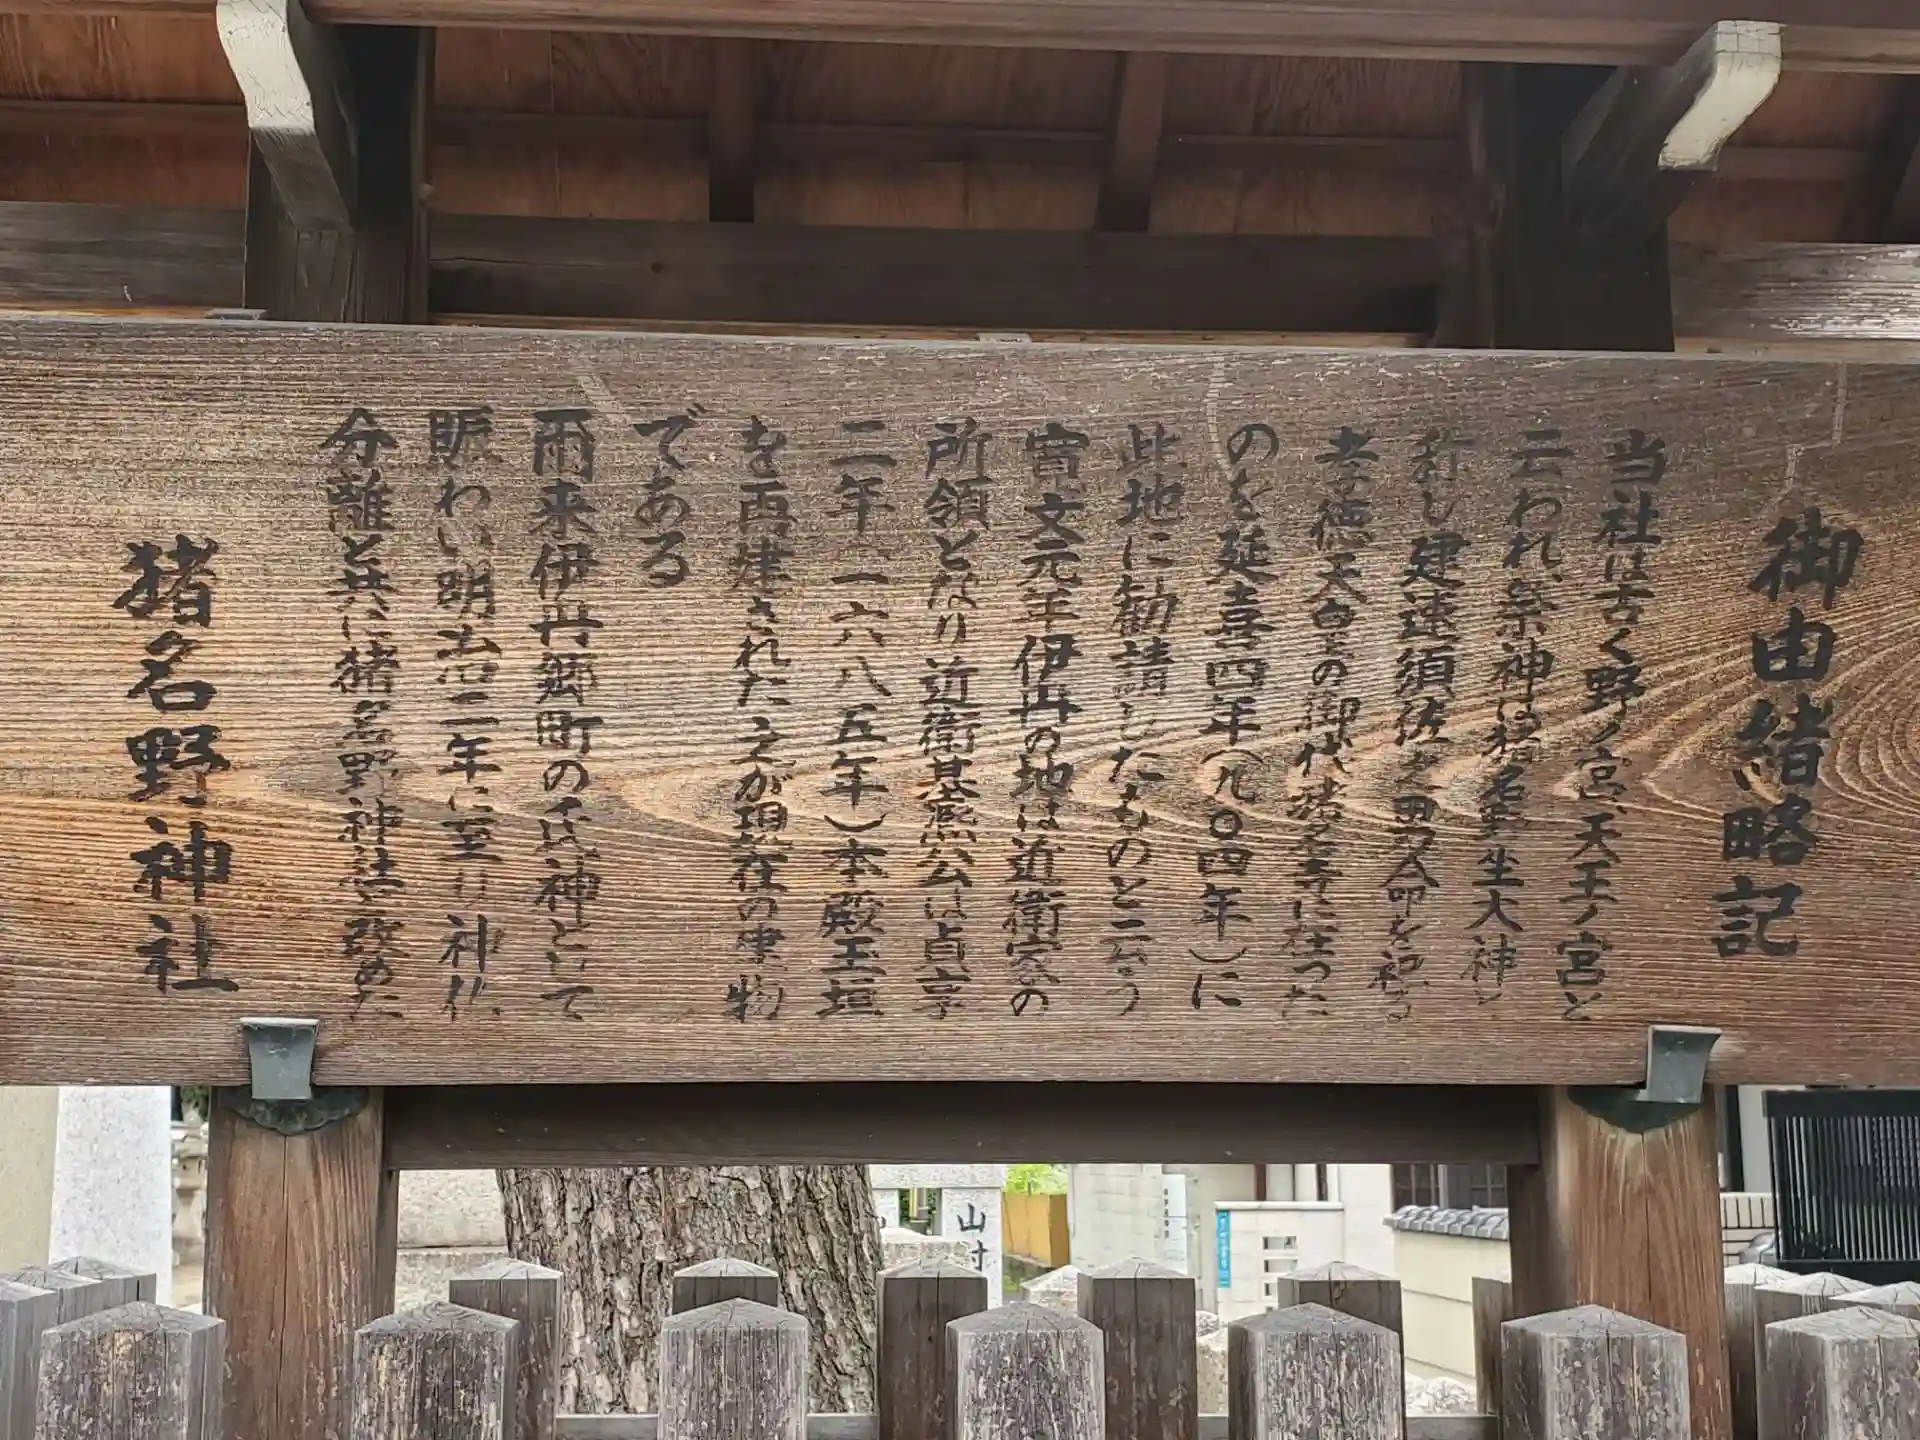 御由緒略記
当社は古く野ノ宮、天王ノ宮と
云われ、祭神は猪名野坐大神と
称し建速須佐之男命を祀る
孝徳天皇の御代猪名寺に在った
のを延喜四年(九〇四年)に
此地に勧請したものと云う
寛文元年伊丹の地は近衛家の
所領となり近衛基熈公は貞享
二年(一六八五年)本殿玉垣
を再建された之が現在の建物
である
雨来伊丹郷町の氏神として
賑わい明治二年に至り神仏
分離と共に猪名野神社と改めた
猪名野神社
山